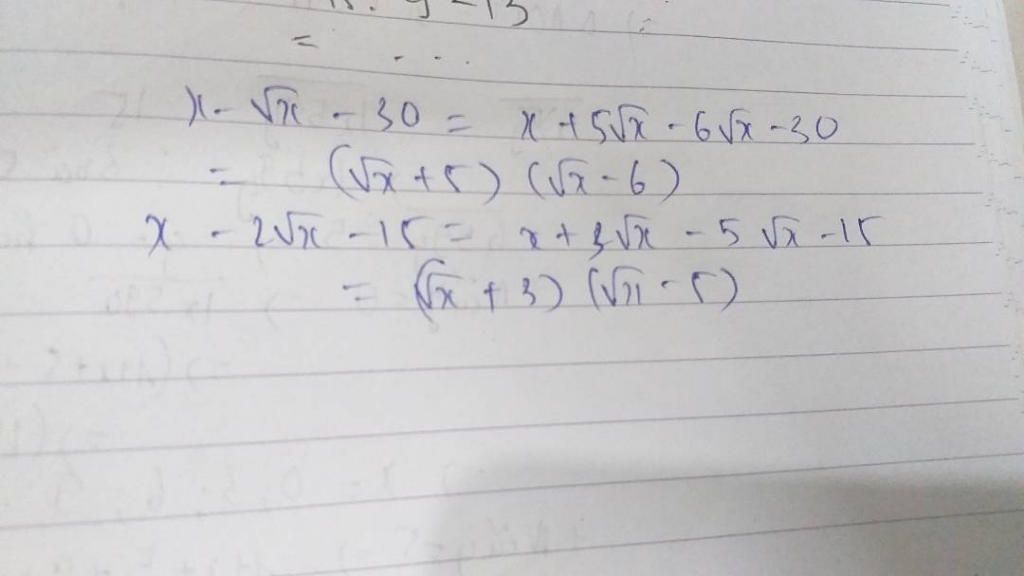 =
. . .
x - √x - 30 = x + 5√x - 6√x - 30
= (√x + 5) (√x - 6)
x - 2√x - 15 = x + 3√x - 5√x - 15
= (√x + 3) (√x - 5)